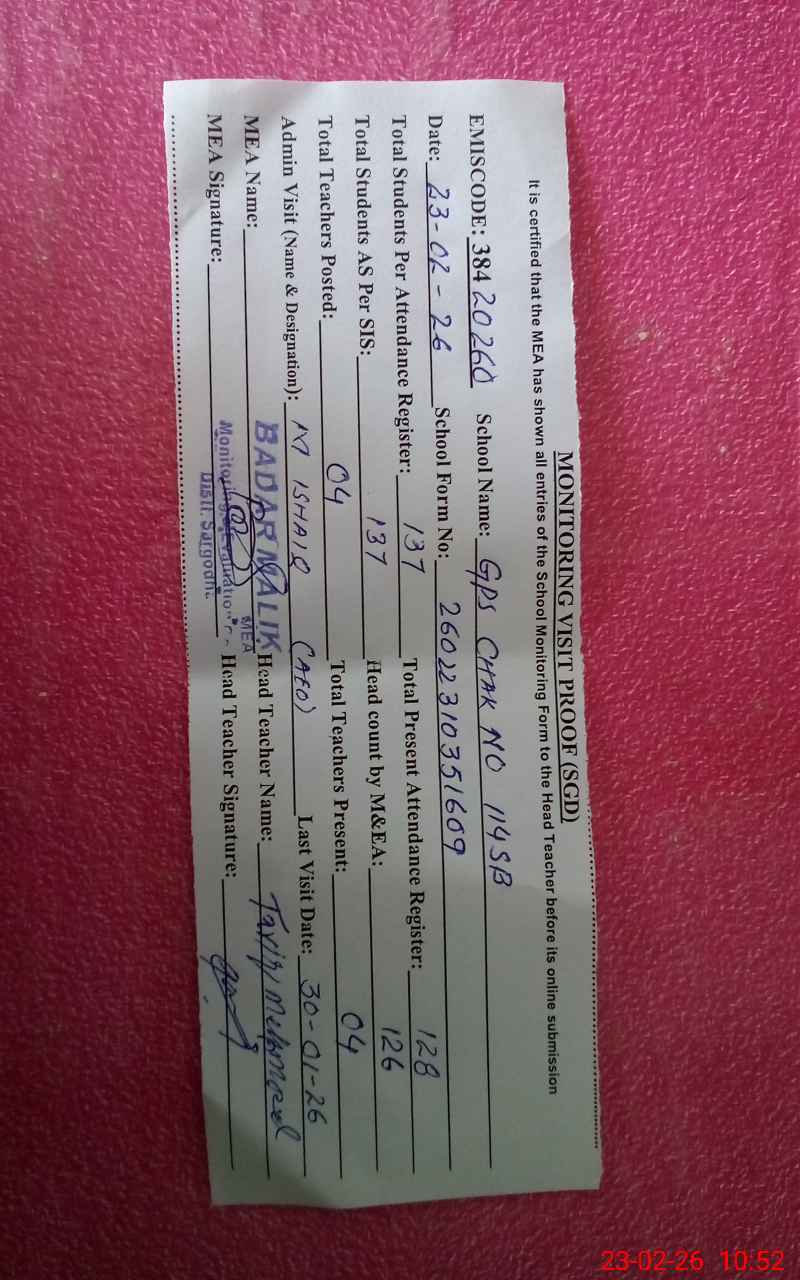 MONITORING VISIT PROOF (SGD)
It is certified that the MEA has shown all entries of the School Monitoring Form to the Head Teacher before its online submission
EMISCODE: 38420260 School Name: GPS CHAK NO 114SB
Date: 23-02-26 School Form No: 26022310351609
Total Students Per Attendance Register: 137 Total Present Attendance Register: 128
Total Students AS Per SIS: 137 Head count by M&EA: 126
Total Teachers Posted: 04 Total Teachers Present: 04
Admin Visit (Name & Designation): M ISHAIQ (AEO) Last Visit Date: 30-01-26
MEA Name: BADAR MALIK MEA Head Teacher Name:
MEA Signature: Monitoring Distt. Sargodha Head Teacher Signature:
23-02-26 10:52